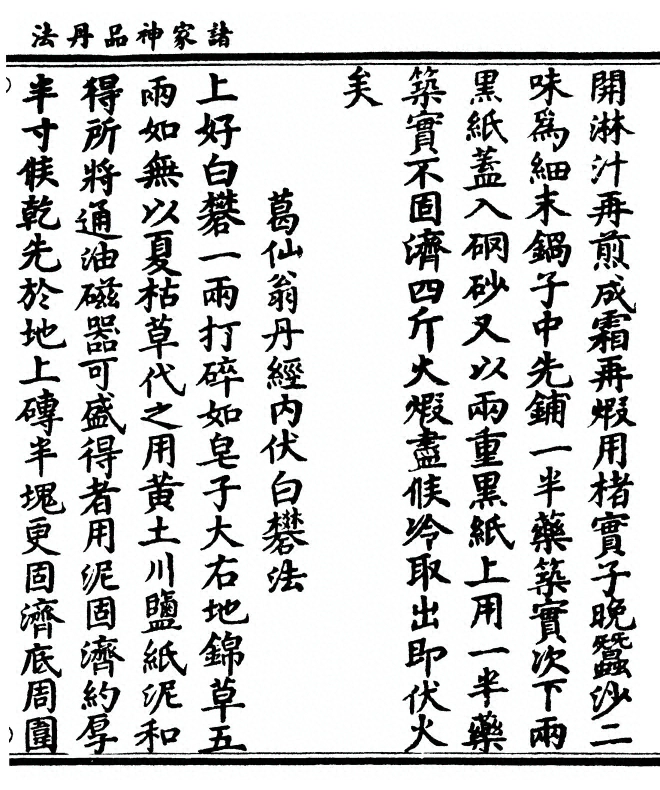 諸家神品丹法
開淋汁再煎成霜再煆用楮實子晚蠶沙二
味為細末鍋子中先鋪一半藥築實次下兩
黑紙蓋入硇砂又以兩重黑紙上用一半藥
築實不固濟四斤火煆盡候冷取出即伏火
矣
葛仙翁丹經內伏白礬法
上好白礬一兩打碎如皂子大右地錦草五
兩如無以夏枯草代之用黃土川鹽紙泥和
得所將通油磁器可盛得者用泥固濟約厚
半寸候乾先於地上磚半塊更固濟底周圍